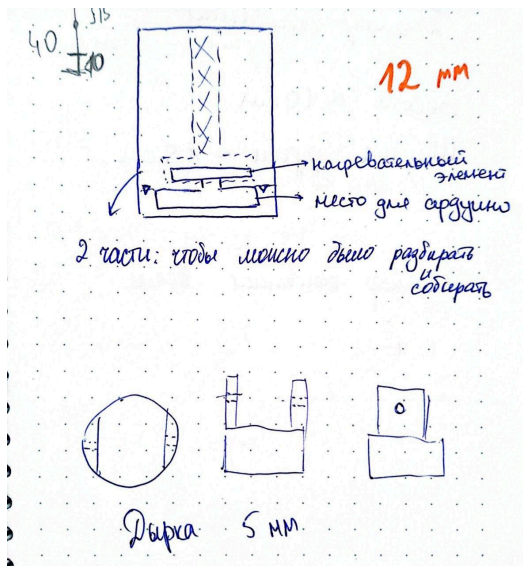 40
10
12 мм
нагревательный
элемент
место для ардуино
2 части: чтобы можно было разбирать
и
собирать
Дырка 5 мм